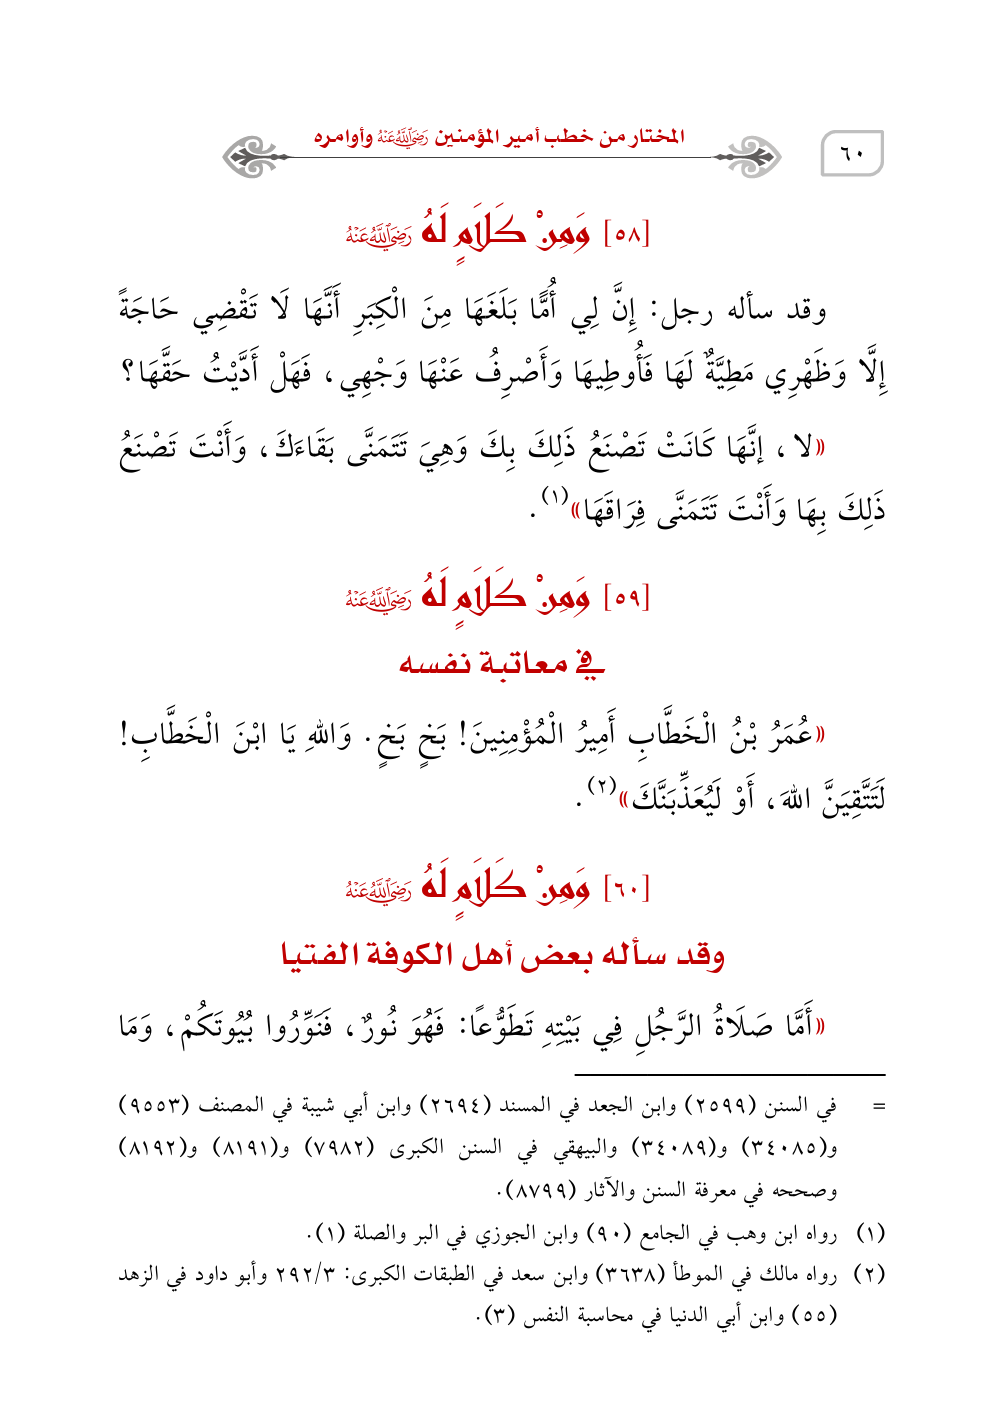 ٦٠
المختار من خطب أمير المؤمنين رَضِيَ اللَّهُ عَنْهُ وأوامره
[٥٨] وَمِنْ كَلَامٍ لَهُ رَضِيَ اللَّهُ عَنْهُ
وقد سأله رجل: إِنَّ لِي أُمًّا بَلَغَهَا مِنَ الْكِبَرِ أَنَّهَا لَا تَقْضِي حَاجَةً
إِلَّا وَظَهْرِي مَطِيَّةٌ لَهَا فَأُوطِيهَا وَأَصْرِفُ عَنْهَا وَجْهِي، فَهَلْ أَدَّيْتُ حَقَّهَا؟
«لا، إنَّهَا كَانَتْ تَصْنَعُ ذَلِكَ بِكَ وَهِيَ تَتَمَنَّى بَقَاءَكَ، وَأَنْتَ تَصْنَعُ
ذَلِكَ بِهَا وَأَنْتَ تَتَمَنَّى فِرَاقَهَا»(١).
[٥٩] وَمِنْ كَلَامٍ لَهُ رَضِيَ اللَّهُ عَنْهُ
في معاتبة نفسه
«عُمَرُ بْنُ الْخَطَّابِ أَمِيرُ الْمُؤْمِنِينَ! بَخٍ بَخٍ. وَاللهِ يَا ابْنَ الْخَطَّابِ!
لَتَتَّقِيَنَّ اللهَ، أَوْ لَيُعَذِّبَنَّكَ»(٢).
[٦٠] وَمِنْ كَلَامٍ لَهُ رَضِيَ اللَّهُ عَنْهُ
وقد سأله بعض أهل الكوفة الفتيا
«أَمَّا صَلَاةُ الرَّجُلِ فِي بَيْتِهِ تَطَوُّعًا: فَهُوَ نُورٌ، فَنَوِّرُوا بُيُوتَكُمْ، وَمَا
= في السنن (٢٥٩٩) وابن الجعد في المسند (٢٦٩٤) وابن أبي شيبة في المصنف (٩٥٥٣)
و(٣٤٠٨٥) و(٣٤٠٨٩) والبيهقي في السنن الكبرى (٧٩٨٢) و(٨١٩١) و(٨١٩٢)
وصححه في معرفة السنن والآثار (٨٧٩٩).
(١) رواه ابن وهب في الجامع (٩٠) وابن الجوزي في البر والصلة (١).
(٢) رواه مالك في الموطأ (٣٦٣٨) وابن سعد في الطبقات الكبرى: ٢٩٢/٣ وأبو داود في الزهد
(٥٥) وابن أبي الدنيا في محاسبة النفس (٣).